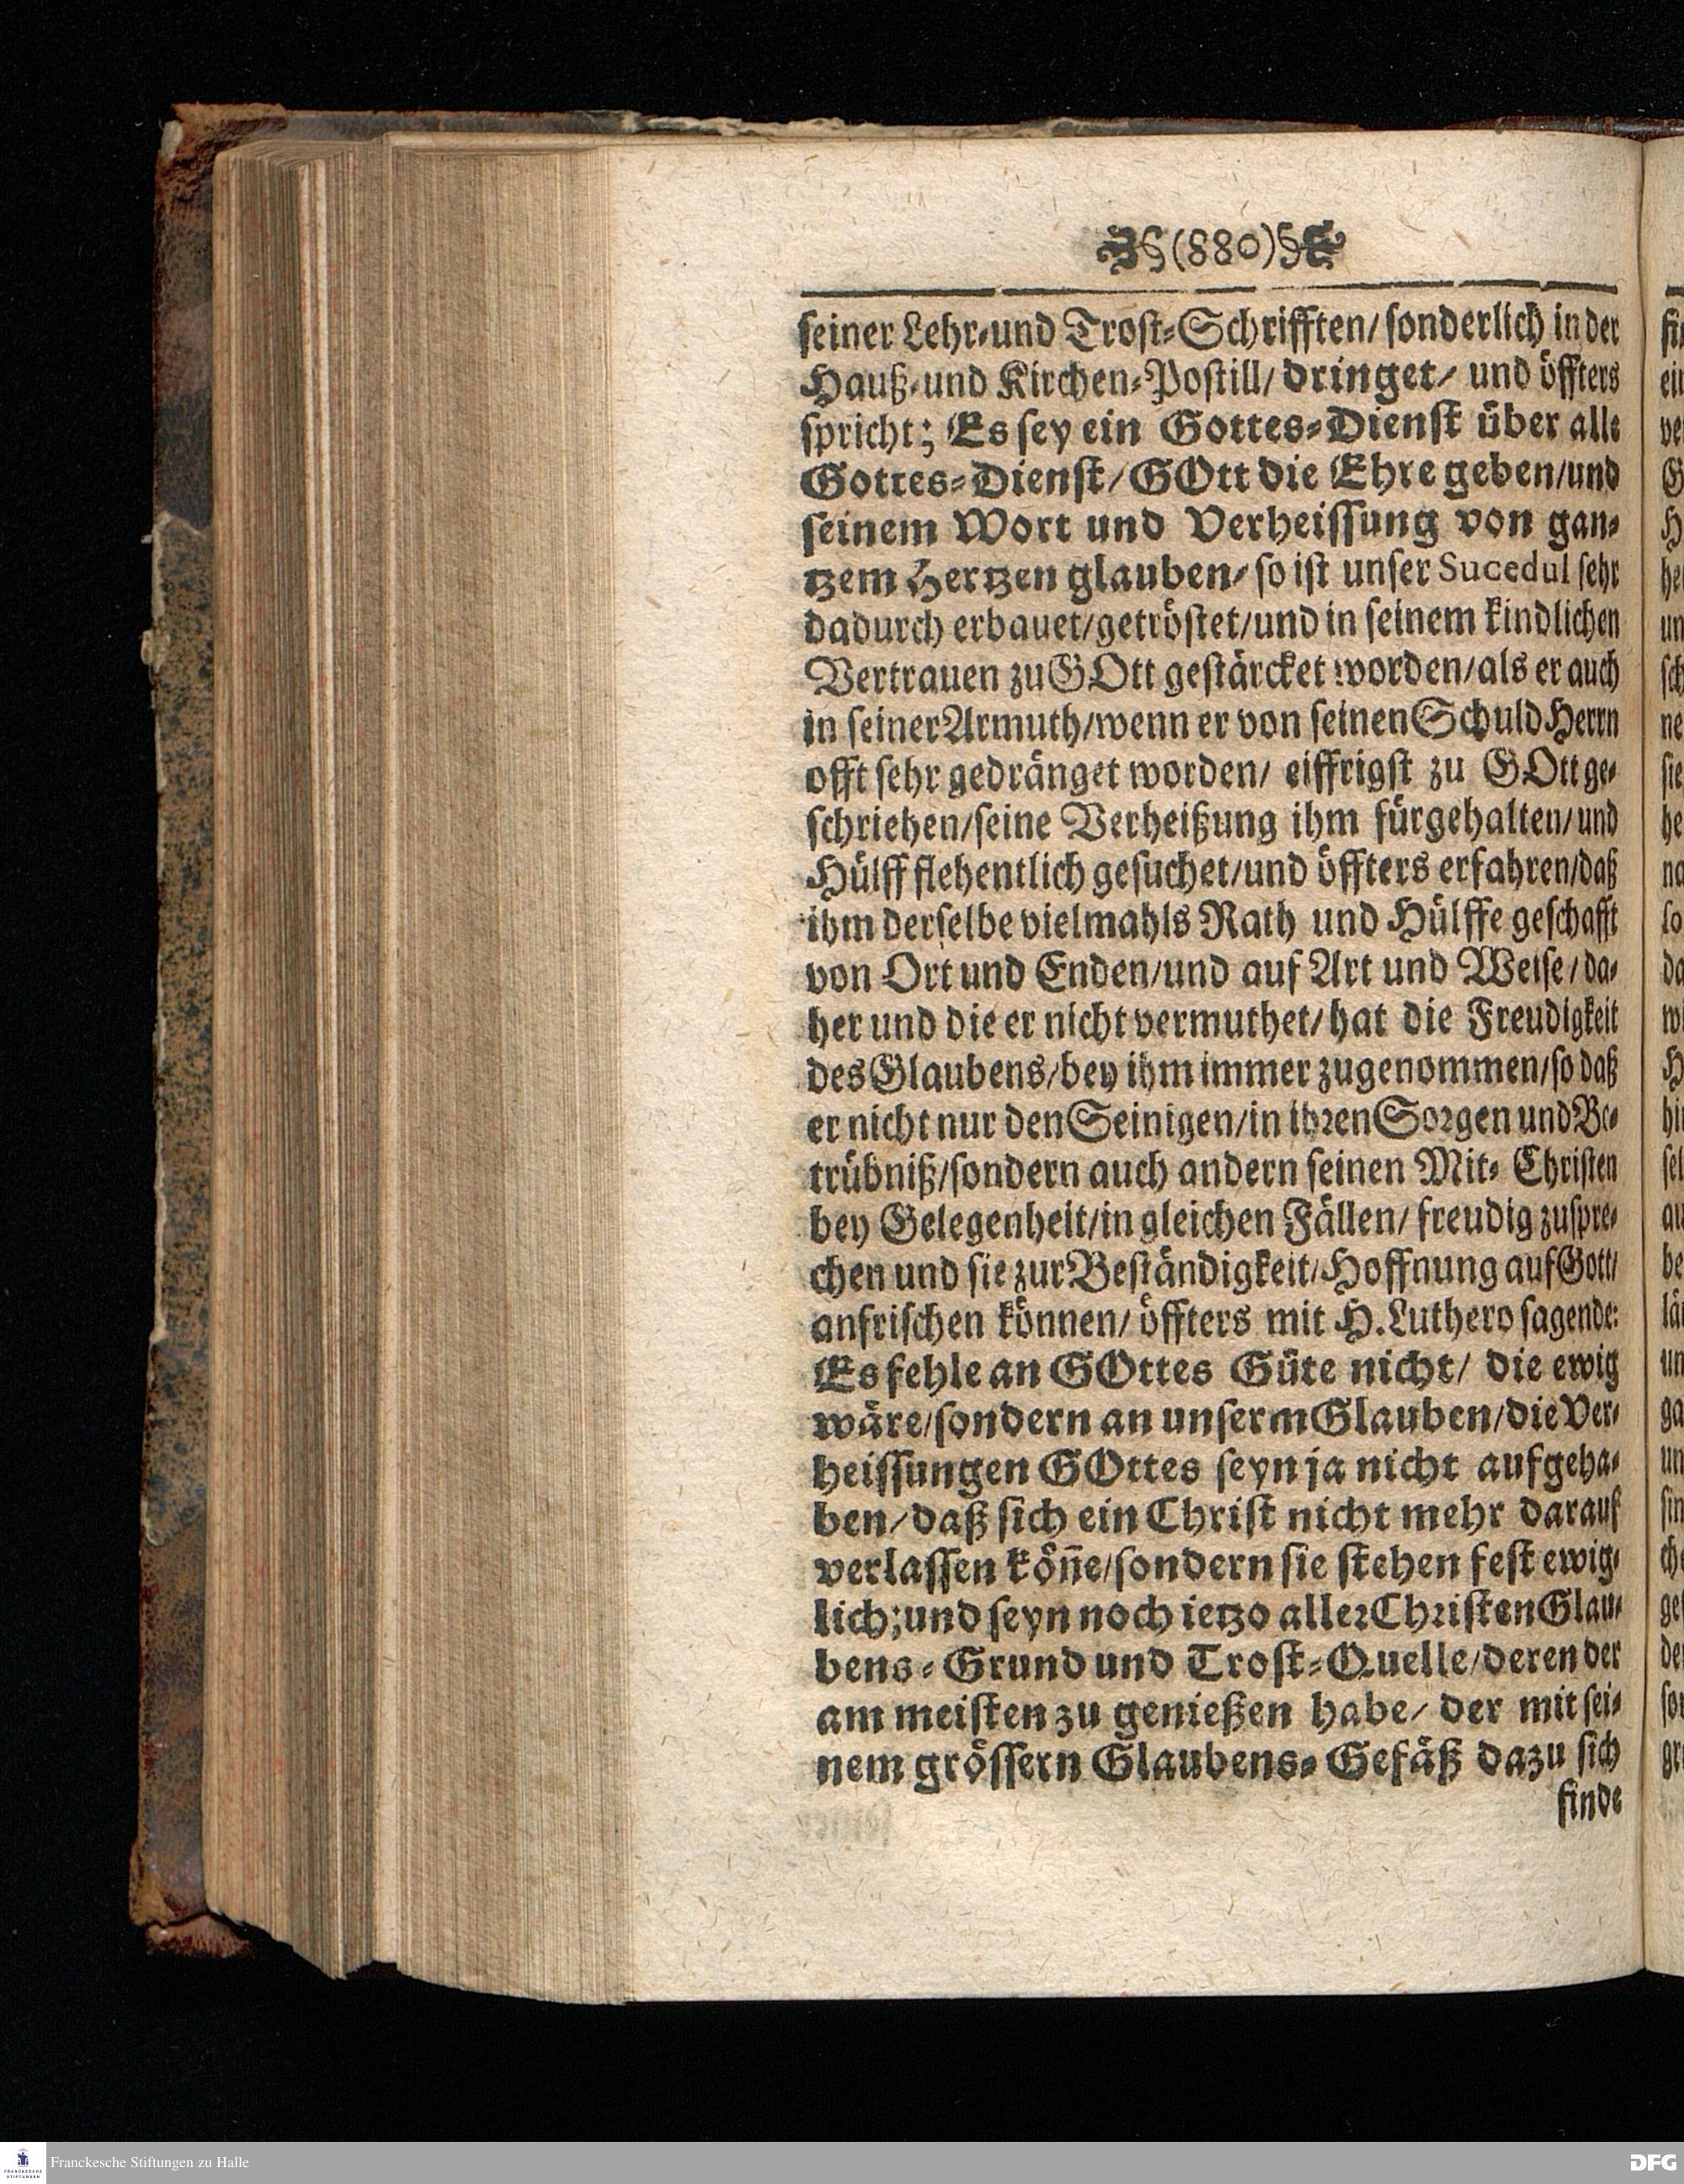 §(880)§
seiner Lehr-und Trost-Schrifften/ sonderlich in der
Hauß-und Kirchen-Postill/ dringet/ und öffters
spricht; Es sey ein Gottes-Dienst über alle
Gottes-Dienst/ GOtt die Ehre geben/und
seinem Wort und Verheissung von gan-
tzem Hertzen glauben/ so ist unser Sucedul sehr
dadurch erbauet/getröstet/und in seinem kindlichen
Vertrauen zu GOtt gestärcket worden/als er auch
in seiner Armuth/wenn er von seinen Schuld Herrn
offt sehr gedränget worden/ eiffrigst zu GOtt ge-
schriehen/seine Verheißung ihm fürgehalten/und
Hülff flehentlich gesuchet/und öffters erfahren/daß
ihm derselbe vielmahls Rath und Hülffe geschafft
von Ort und Enden/und auf Art und Weise/da-
her und die er nicht vermuthet/hat die Freudigkeit
des Glaubens/bey ihm immer zugenommen/so daß
er nicht nur den Seinigen/in ihren Sorgen und Be-
trübniß/sondern auch andern seinen Mit-Christen
bey Gelegenheit/in gleichen Fällen/ freudig zuspre-
chen und sie zur Beständigkeit/Hoffnung auf Gott/
anfrischen können/ öffters mit H. Luthero sagende:
Es fehle an GOttes Güte nicht/ die ewig
wäre/sondern an unserm Glauben/die Ver-
heissungen GOttes seyn ja nicht aufgeha-
ben/daß sich ein Christ nicht mehr darauf
verlassen köñe/sondern sie stehen fest ewig-
lich; und seyn noch ietzo aller Christen Glau-
bens-Grund und Trost-Quelle/deren der
am meisten zu genießen habe/ der mit sei-
nem grössern Glaubens-Gefäß dazu sich
finde
Franckesche Stiftungen zu Halle
DFG